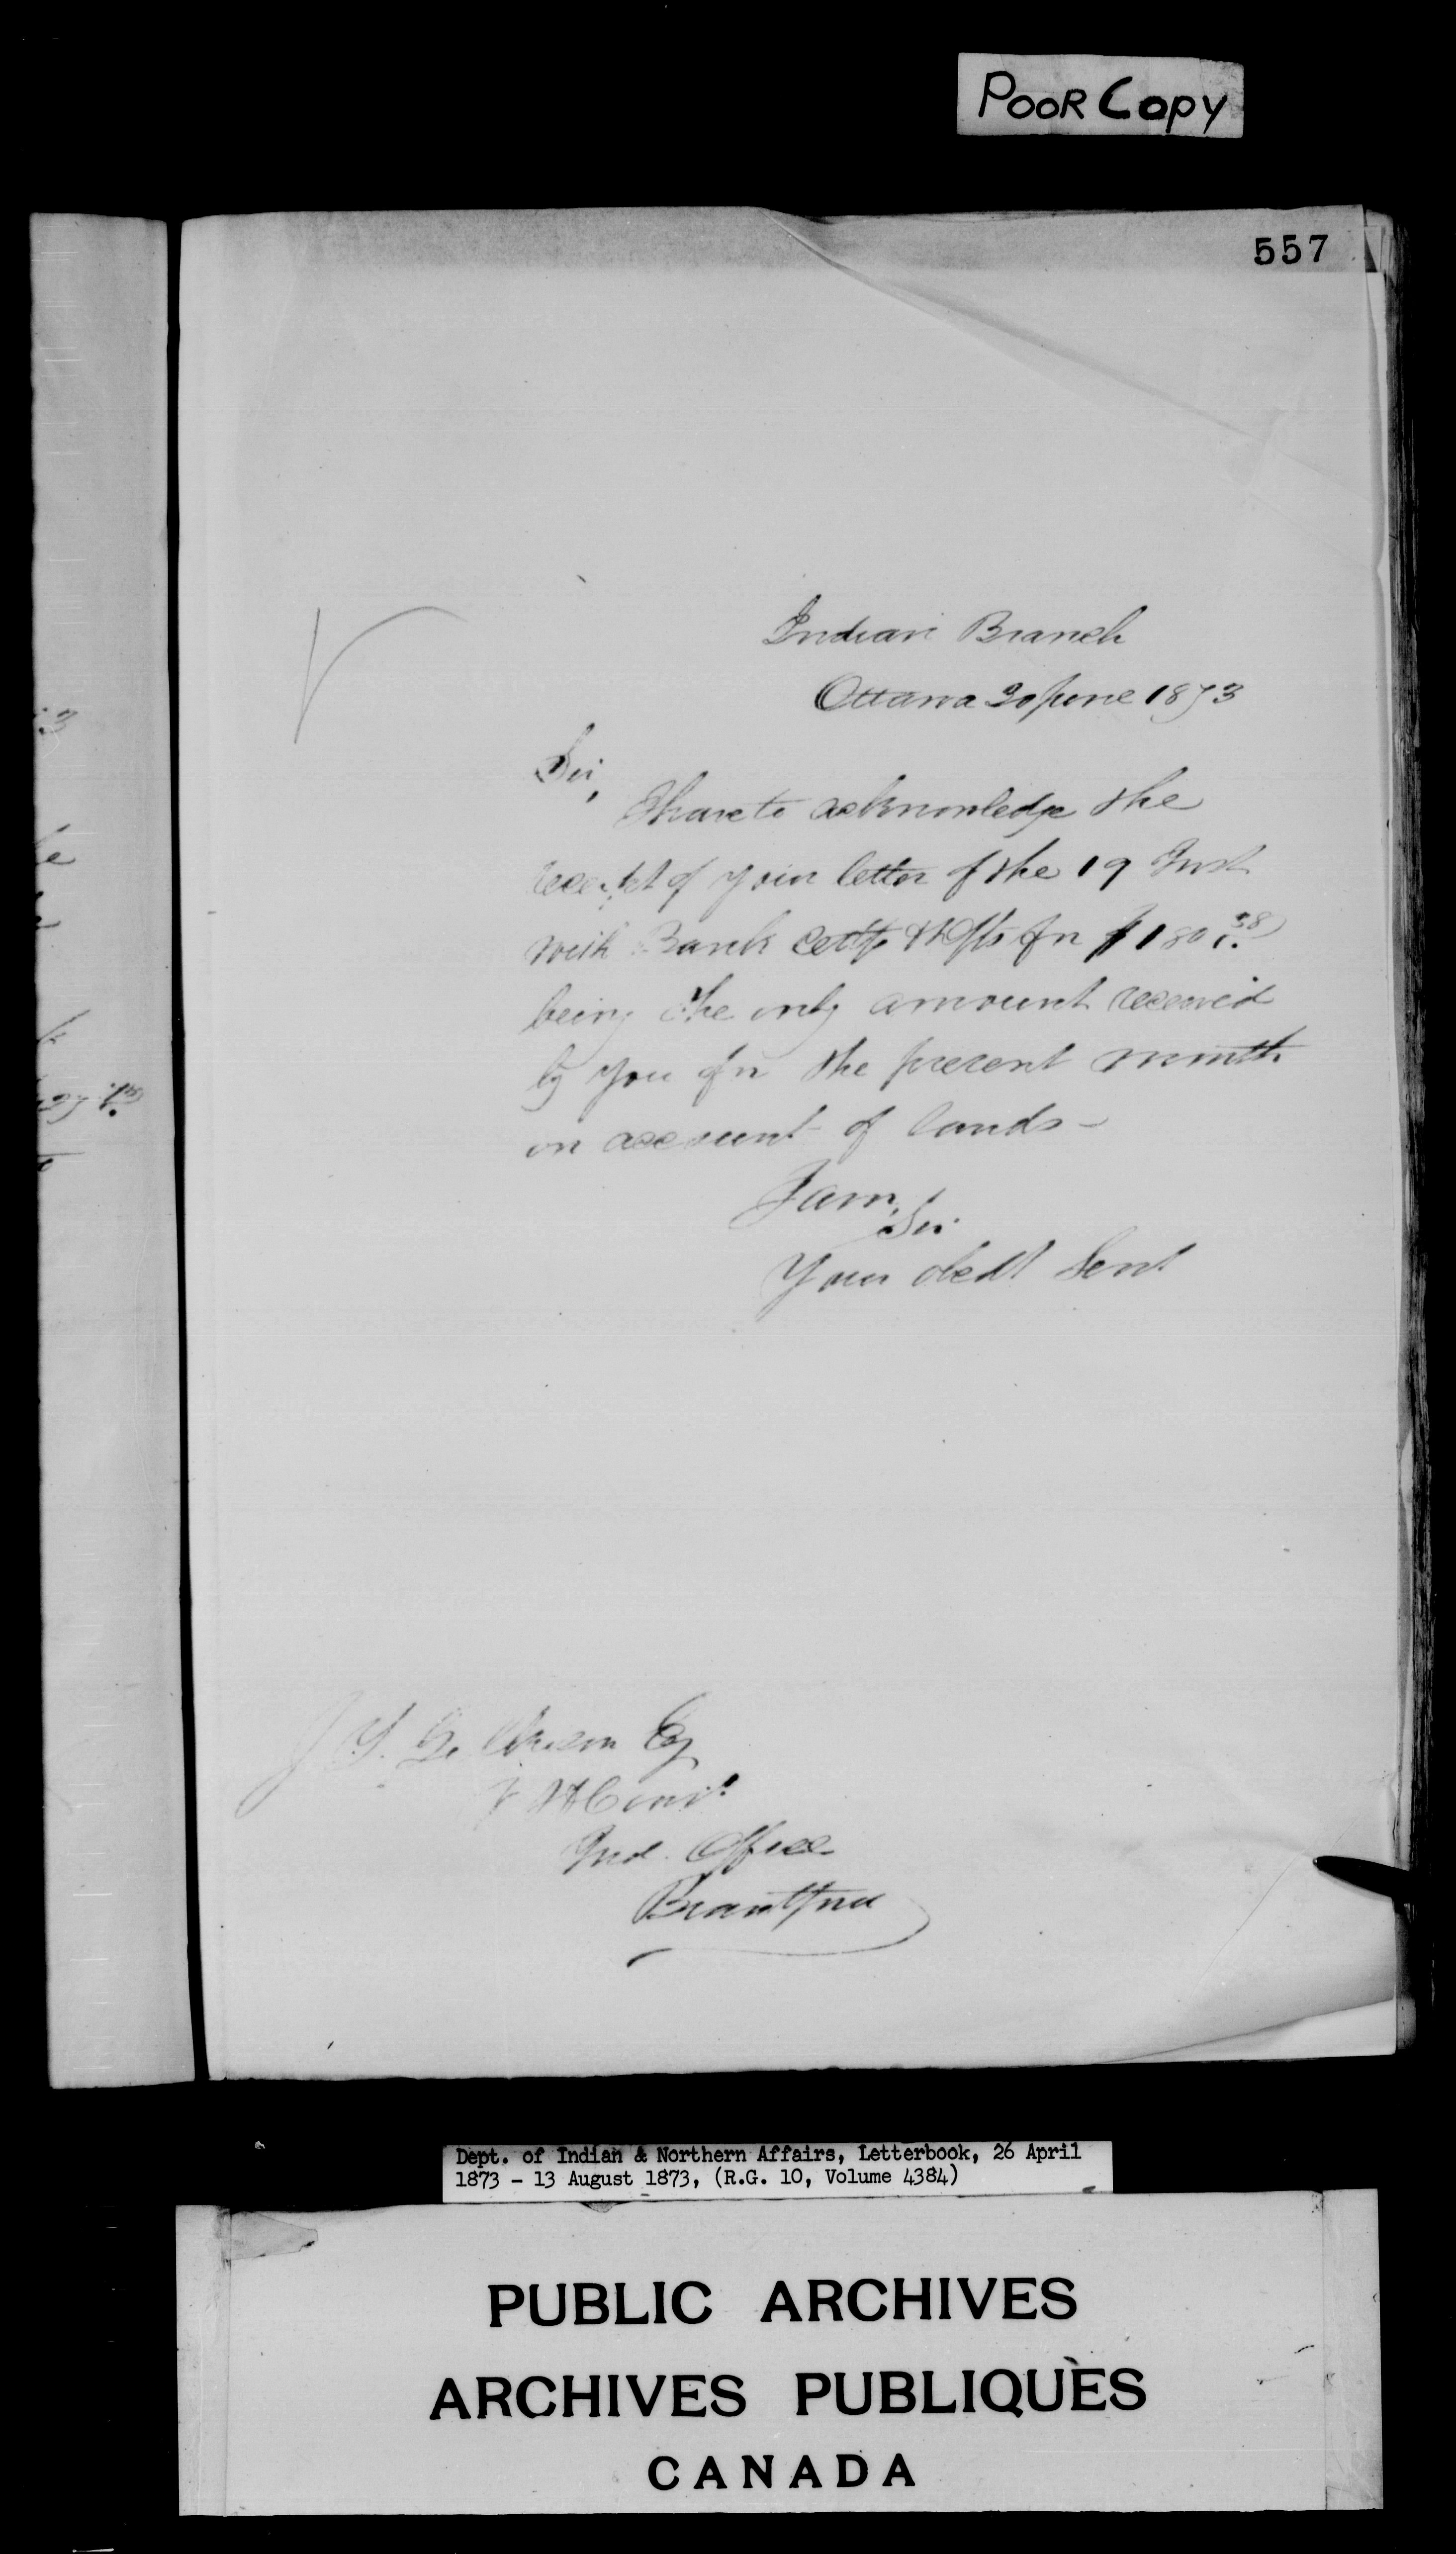 POOR COPY
557
Indian Branch
Ottawa 20 June 1873
Sir,
I have to acknowledge the
receipt of your letter of the 19 Inst
with Bank for $180.38
being the only amount received
by you for the present month
on account of lands -
I am,
Sir
Your obedt Servt
J. T. Gilkison Esq
Ind. Office
Brantford
Dept. of Indian & Northern Affairs, Letterbook, 26 April
1873 - 13 August 1873, (R.G. 10, Volume 4384)
PUBLIC ARCHIVES
ARCHIVES PUBLIQUES
CANADA